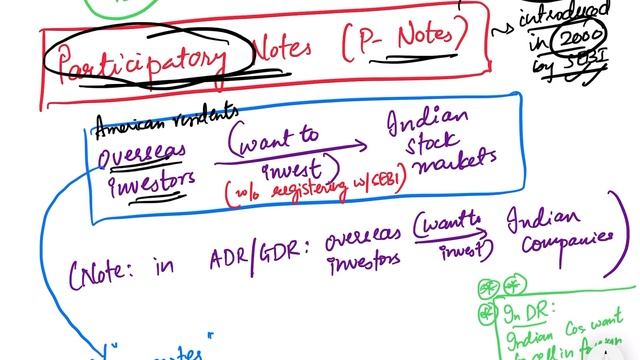 introduced
in 2000
by SEBI
Participatory Notes (P- Notes)
American residents
Overseas (want to Indian
investors invest) stock
(w/o registering w/ SEBI) markets
(Note: in ADR/GDR: overseas (want to Indian
investors invest) companies)
In DR:
Indian Cos want